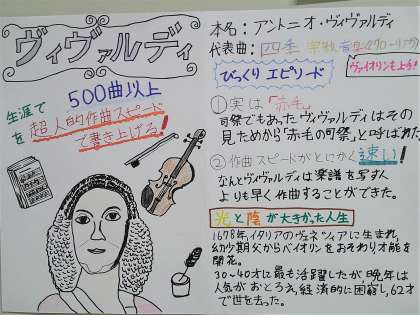 ヴィヴァルディ
生涯で
500曲以上
を超人的作曲スピード
で書き上げる!
本名:アントニオ・ヴィヴァルディ
代表曲:四季 宗教音楽(グローリア)
びっくり エピソード
ヴァイオリンも上手!
①実は「赤毛」
司祭でもあったヴィヴァルディはその
見ためから「赤毛の司祭」と呼ばれた
②作曲スピードがとにかく速い!
なんとヴィヴァルディは楽譜を写す人
よりも早く作曲することができた。
光と陰が大きかった人生
1678年、イタリアのヴェネツィアに生まれ、
幼少期父からバイオリンをおそわり、才能を
開花。
30〜40才に最も活躍したが晩年は
人気がおとろえ、経済的に困窮し、62才
で世を去った。